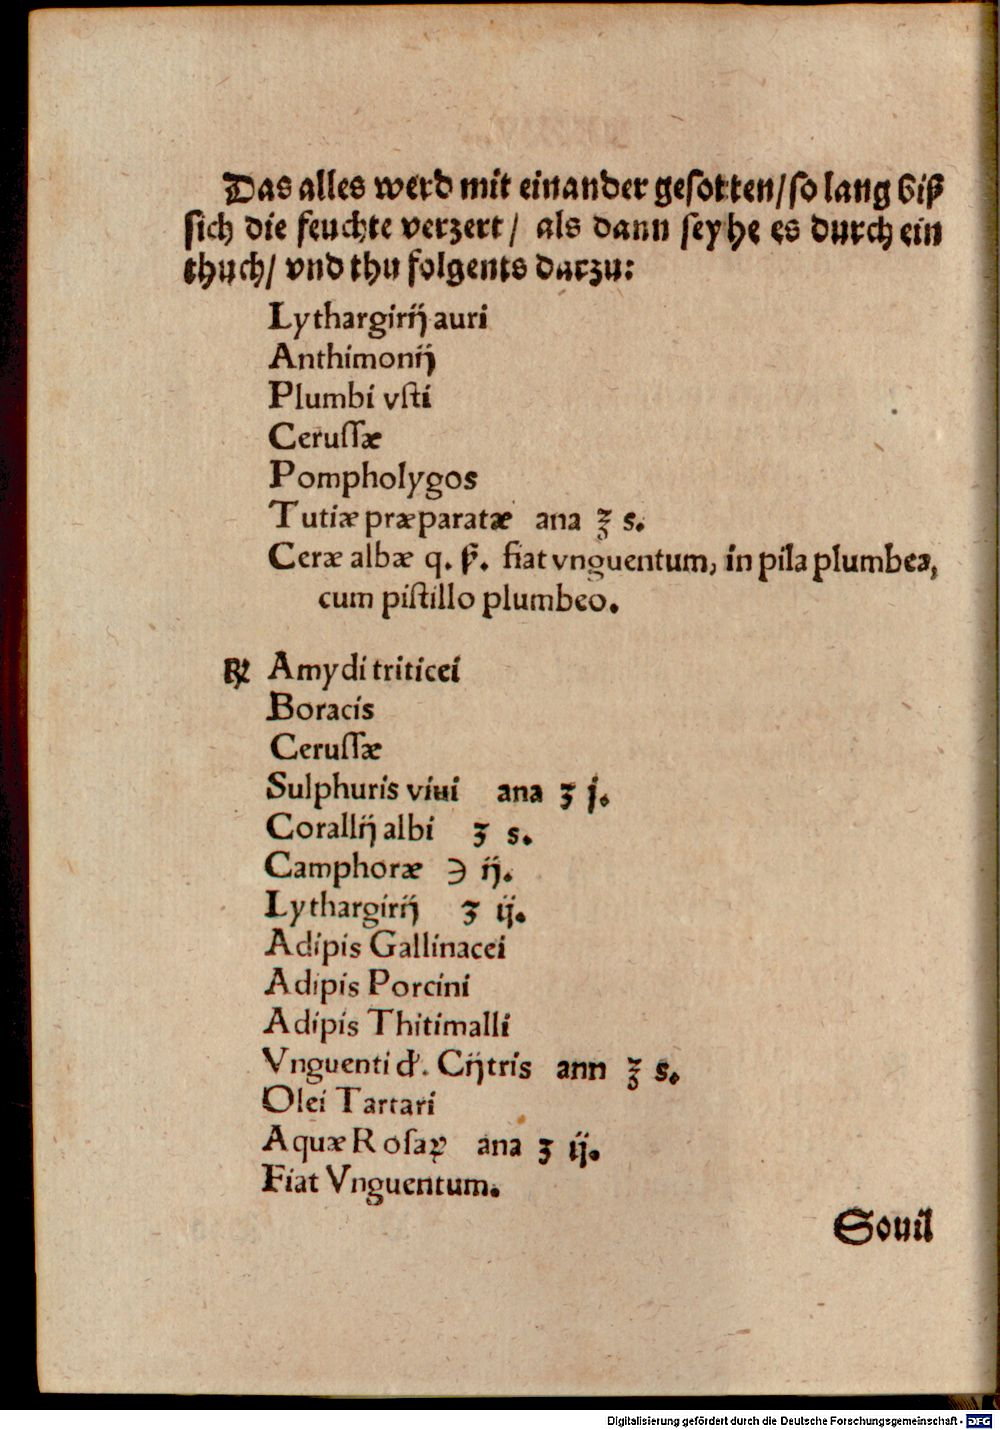 Das alles werd mit einander gesotten/ so lang biß
sich die feuchte verzert/ als dann seyhe es durch ein
thuch/ vnd thu folgents darzu:
Lythargirij auri
Anthimonij
Plumbi vsti
Cerussæ
Pompholygos
Tutiæ præparatæ ana ℥ s.
Ceræ albæ q. ß. fiat vnguentum, in pila plumbea,
cum pistillo plumbeo.
℞ Amydi triticei
Boracis
Cerussæ
Sulphuris viui ana ʒ j.
Corallij albi ʒ s.
Camphoræ ℈ ij.
Lythargirij ʒ ij.
Adipis Gallinacei
Adipis Porcini
Adipis Thitimalli
Vnguenti d'. Cijtris ann ℥ s.
Olei Tartari
Aquæ Rosaꝝ ana ʒ ij.
Fiat Vnguentum.
Souil
Digitalisierung gefördert durch die Deutsche Forschungsgemeinschaft - DFG